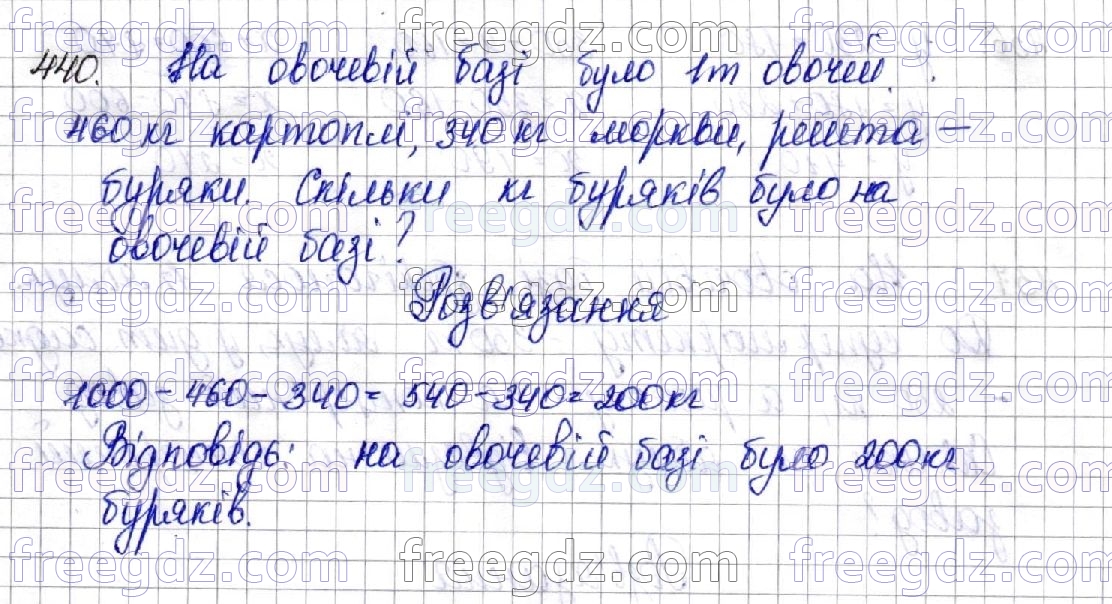 440. На овочевій базі було 1т овочей.
460 кг картоплі, 340 кг моркви, решта –
буряки. Скільки кг буряків було на
овочевій базі?
Розв'язання
1000 - 460 - 340 = 540 - 340 = 200 кг
Відповідь: на овочевій базі було 200 кг
буряків.